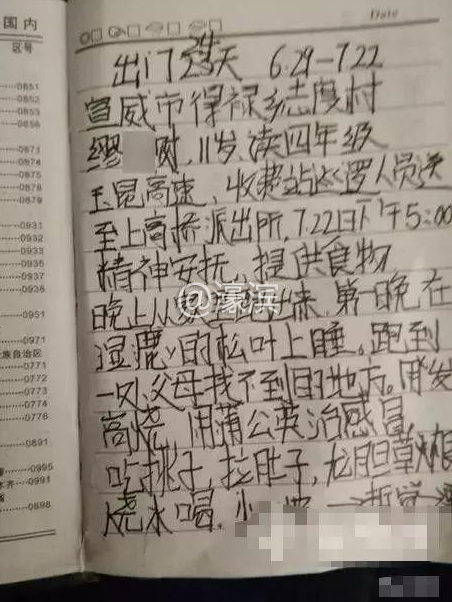 国内
区号
0851
0852
0855
0856
0871
0874
0875
0878
0879
0931
0932
0933
0937
0951
0971
族自治区
0771
0772
0773
0774
0776
0891
0995
木齐-0991
0898
Date
出门23天 6.29-7.22
宣威市得禄乡志度村
缪 财,11岁.读四年级
玉昆高速,收费站巡罗人员送
至上高桥派出所,7.22日下午5:00
精神安抚,提供食物
晚上从 跑出来,第一晚在
湿漉的松叶上睡。跑到
一父母找不到目的地方。发
高烧,用蒲公英治感冒,
吃桃子,拉肚子,龙胆草根
烧水喝.
@濠滨